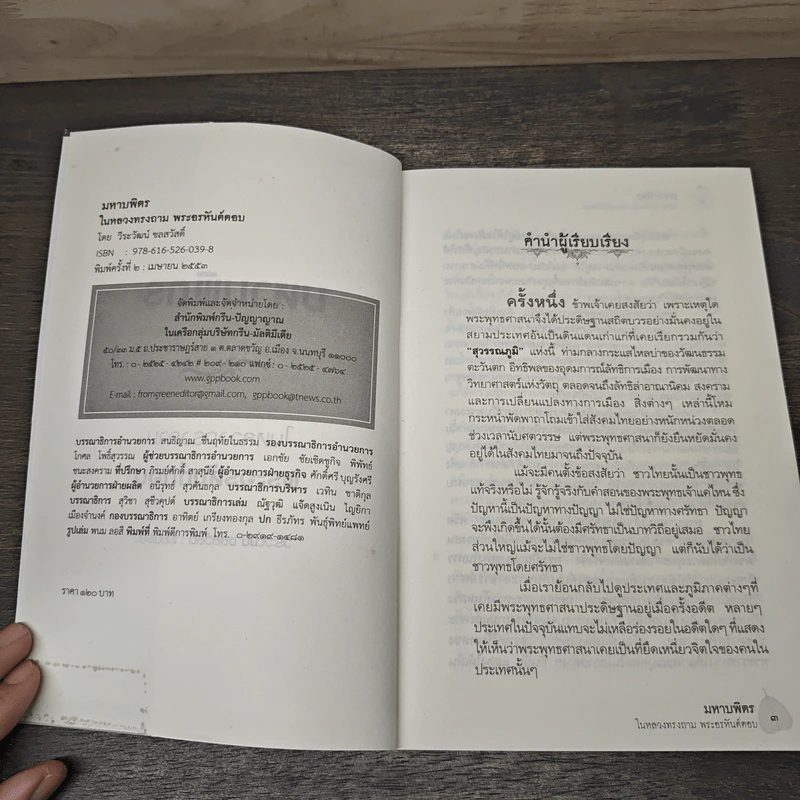 มหาบพิตร
ในหลวงทรงถาม พระอรหันต์ตอบ
โดย วีระวัฒน์ ชลสวัสดิ์
ISBN : 978-616-526-039-8
พิมพ์ครั้งที่ ๒ : เมษายน ๒๕๕๓
จัดพิมพ์และจัดจำหน่ายโดย :
สำนักพิมพ์กรีน-ปัญญาญาณ
ในเครือกลุ่มบริษัทกรีน-มัลติมีเดีย
๕๐/๓๓ ม.๕ ถ.ประชาราษฎร์สาย ๑ ต.ตลาดขวัญ อ.เมือง จ.นนทบุรี ๑๑๐๐๐
โทร. : ๐-๒๕๒๕-๔๒๔๒ # ๒๐๙-๒๑๐ แฟกซ์ : ๐-๒๕๒๕-๔๗๖๔
www.gppbook.com
E-mail : fromgreeneditor@gmail.com, gppbook@tnews.co.th
บรรณาธิการอำนวยการ สนธิญาณ ชื่นฤทัยในธรรม รองบรรณาธิการอำนวยการ
โกศล โพธิ์สุวรรณ ผู้ช่วยบรรณาธิการอำนวยการ เอกชัย ชัยเชิดชูกิจ พิพัทธ์
ชนะสงคราม ที่ปรึกษา ภิรมย์ศักดิ์ สาสุนีย์ ผู้อำนวยการฝ่ายธุรกิจ ศักดิ์ศรี บุญรังศรี
ผู้อำนวยการฝ่ายผลิต อนิรุทธ์ สุวคันธกุล บรรณาธิการบริหาร เวทิน ชาติกุล
บรรณาธิการ สุวิชา สุชีวคุปต์ บรรณาธิการเล่ม ณัฐวุฒิ แจ๊ดสูงเนิน ไญยิกา
เมืองจำนงค์ กองบรรณาธิการ อาทิตย์ เกรียงทองกุล ปก ธีรภัทร พันธุ์พิทย์แพทย์
รูปเล่ม พนม ลอสี พิมพ์ที่ พิมพ์ดีการพิมพ์ โทร. ๐-๒๙๑๙-๑๔๘๑
ราคา ๑๒๐ บาท
คำนำผู้เรียบเรียง
ครั้งหนึ่ง ข้าพเจ้าเคยสงสัยว่า เพราะเหตุใด
พระพุทธศาสนาจึงได้ประดิษฐานสถิตบวรอย่างมั่นคงอยู่ใน
สยามประเทศอันเป็นดินแดนเก่าแก่ที่เคยเรียกรวมกันว่า
“สุวรรณภูมิ” แห่งนี้ ท่ามกลางกระแสไหลบ่าของวัฒนธรรม
ตะวันตก อิทธิพลของอุดมการณ์ลัทธิการเมือง การพัฒนาทาง
วิทยาศาสตร์แห่งวัตถุ ตลอดจนถึงลัทธิล่าอาณานิคม สงคราม
และการเปลี่ยนแปลงทางการเมือง สิ่งต่างๆ เหล่านี้โหม
กระหน่ำพัดพาถาโถมเข้าใส่สังคมไทยอย่างหนักหน่วงตลอด
ช่วงเวลานับศตวรรษ แต่พระพุทธศาสนาก็ยังยืนหยัดมั่นคง
อยู่ได้ในสังคมไทยมาจนถึงปัจจุบัน
แม้จะมีคนตั้งข้อสงสัยว่า ชาวไทยนั้นเป็นชาวพุทธ
แท้จริงหรือไม่ รู้จักรู้จริงกับคำสอนของพระพุทธเจ้าแค่ไหน ซึ่ง
ปัญหานี้เป็นปัญหาทางปัญญา ไม่ใช่ปัญหาทางศรัทธา ปัญญา
จะพึงเกิดขึ้นได้นั้นต้องมีศรัทธาเป็นบาทวิถีอยู่เสมอ ชาวไทย
ส่วนใหญ่แม้จะไม่ใช่ชาวพุทธโดยปัญญา แต่ก็นับได้ว่าเป็น
ชาวพุทธโดยศรัทธา
เมื่อเราย้อนกลับไปดูประเทศและภูมิภาคต่างๆที่
เคยมีพระพุทธศาสนาประดิษฐานอยู่เมื่อครั้งอดีต หลายๆ
ประเทศในปัจจุบันแทบจะไม่เหลือร่องรอยในอดีตใดๆ ที่แสดง
ให้เห็นว่าพระพุทธศาสนาเคยเป็นที่ยึดเหนี่ยวจิตใจของคนใน
ประเทศนั้นๆ
มหาบพิตร
ในหลวงทรงถาม พระอรหันต์ตอบ
๓